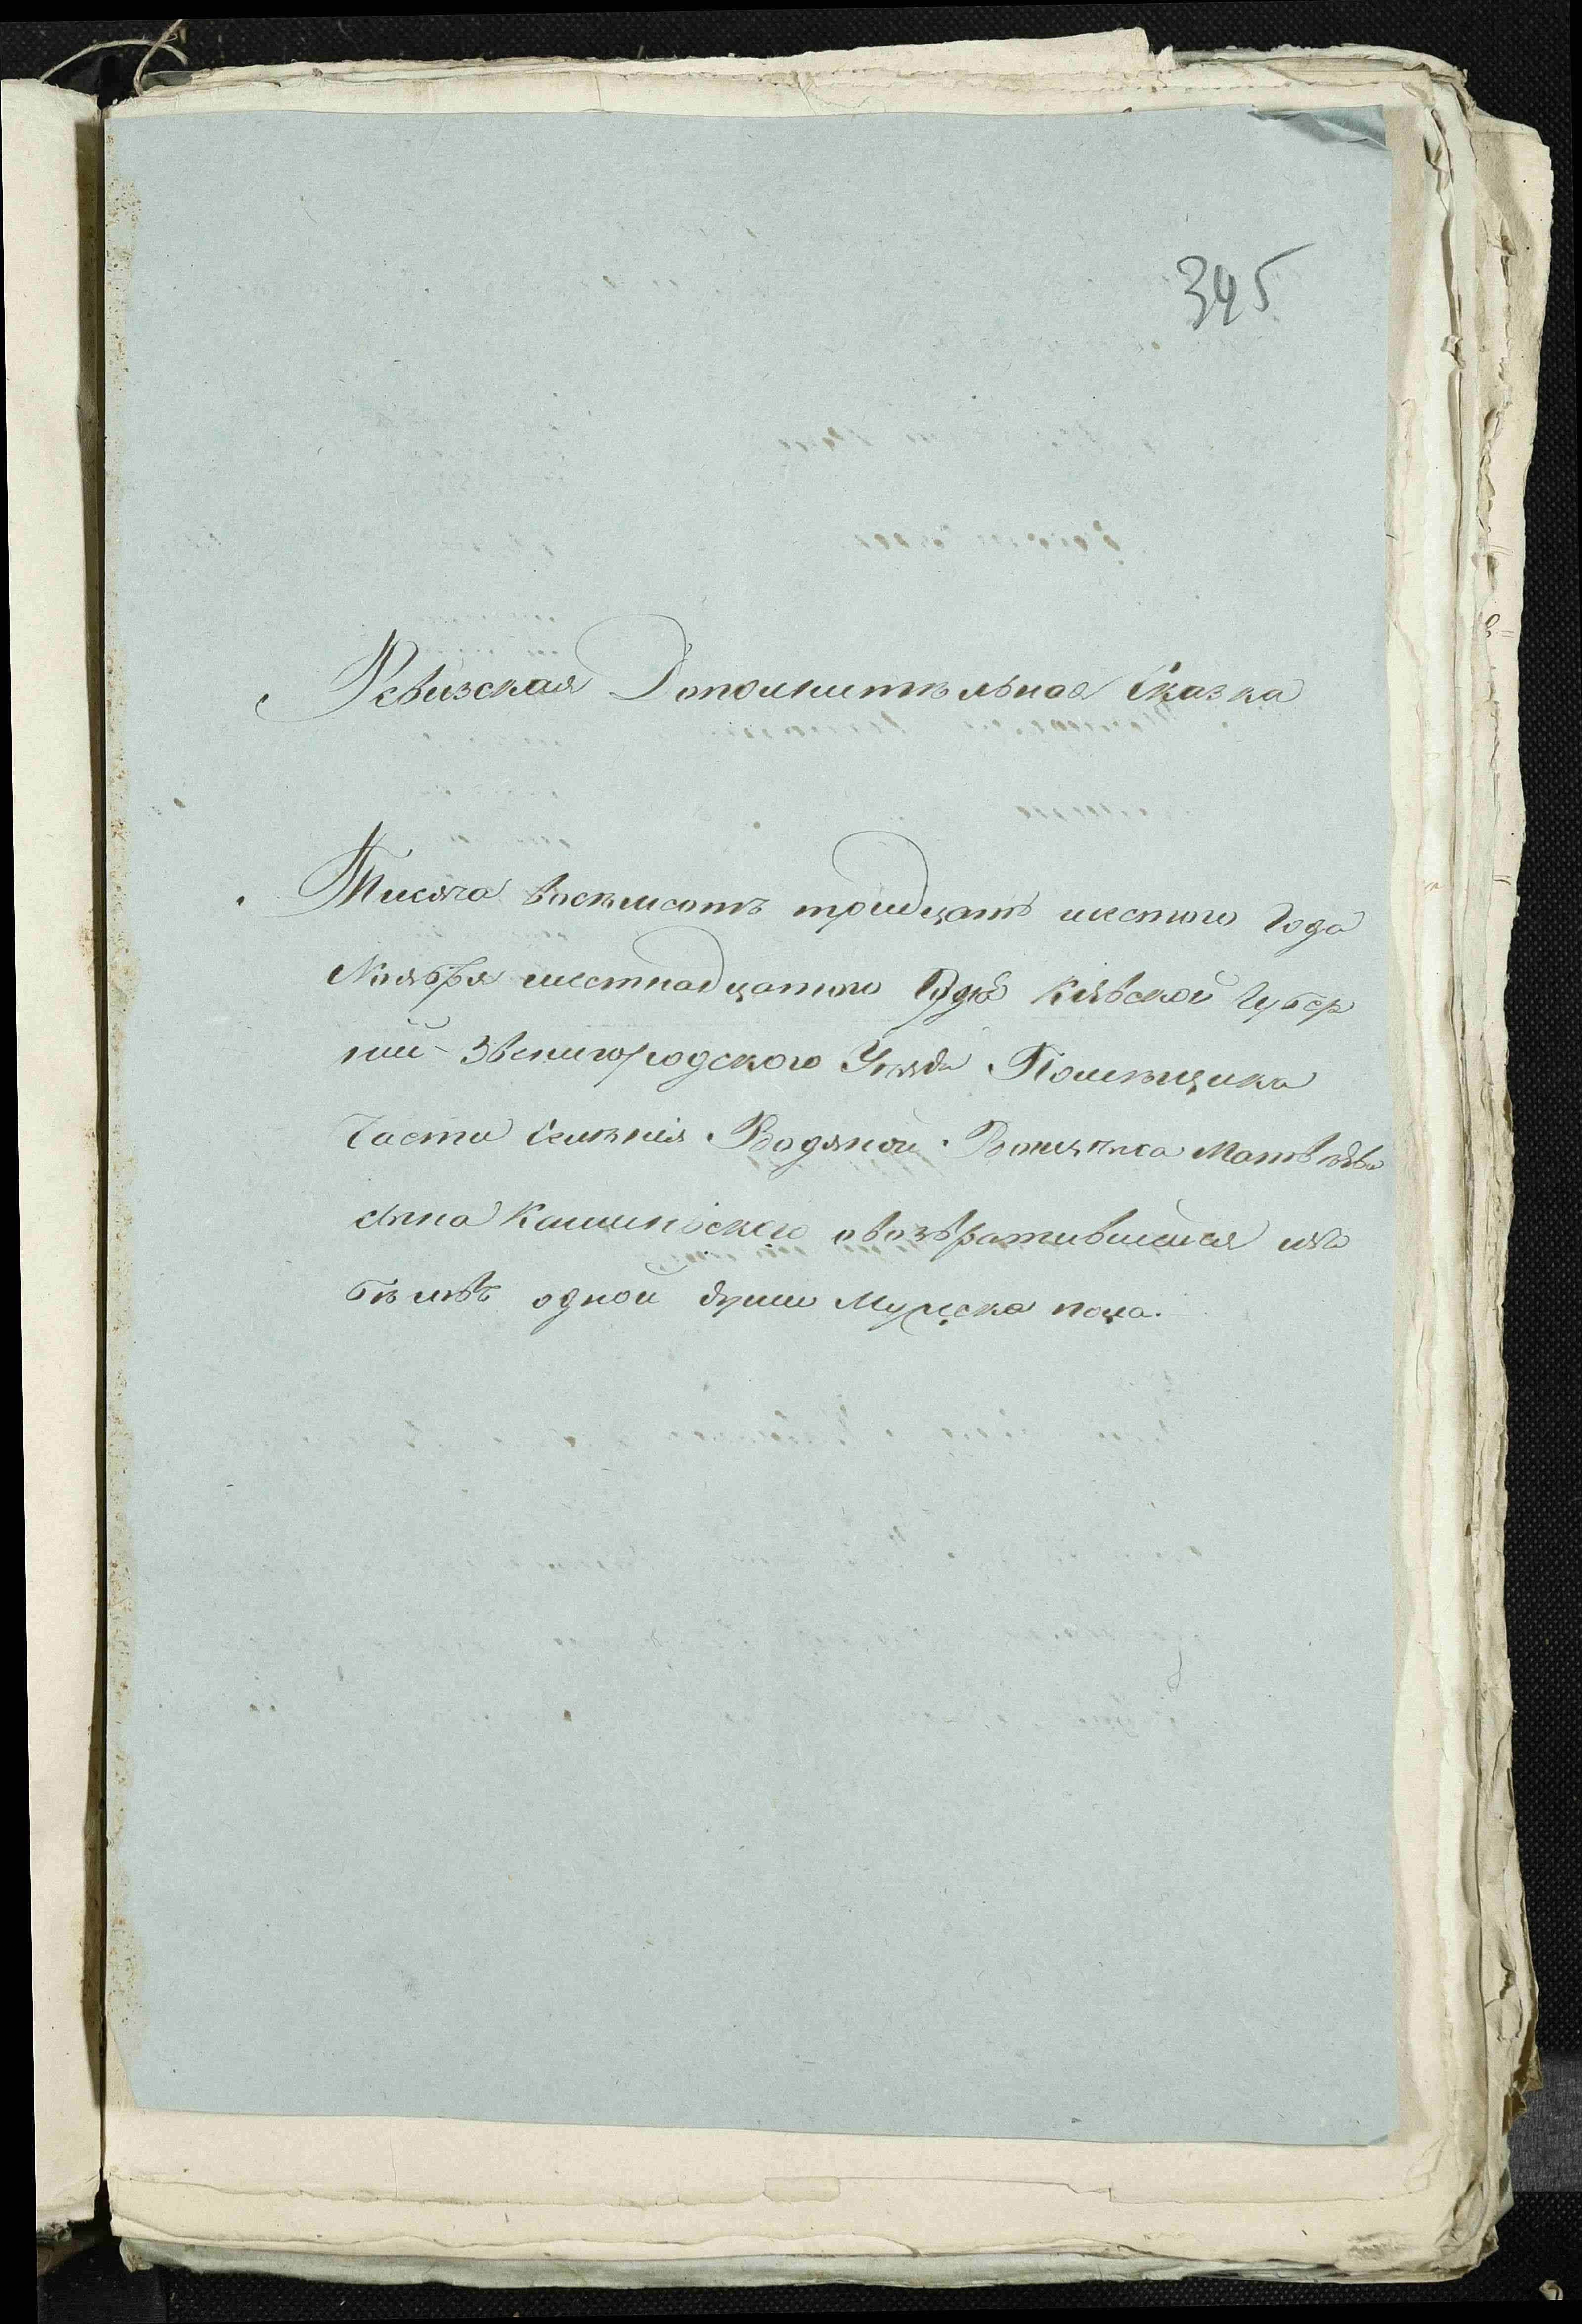 345
Ревизская Дополнительная Сказка
Тисяча восемсотъ тридцать шестого Года
Ноября шестнадцатого дня Кіевской Губер
ніи Звенигородского Уезда Помещика
Части Селенія Водяной Войцеха Матвѣева
сына Каминскаго овозвратившися изъ
беговъ одной души Мужеска пола.